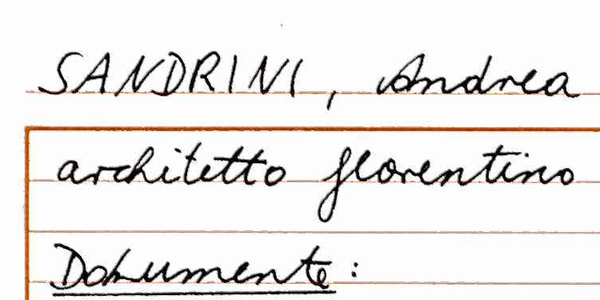 SANDRINI, Andrea
architetto florentino
Dokumente: